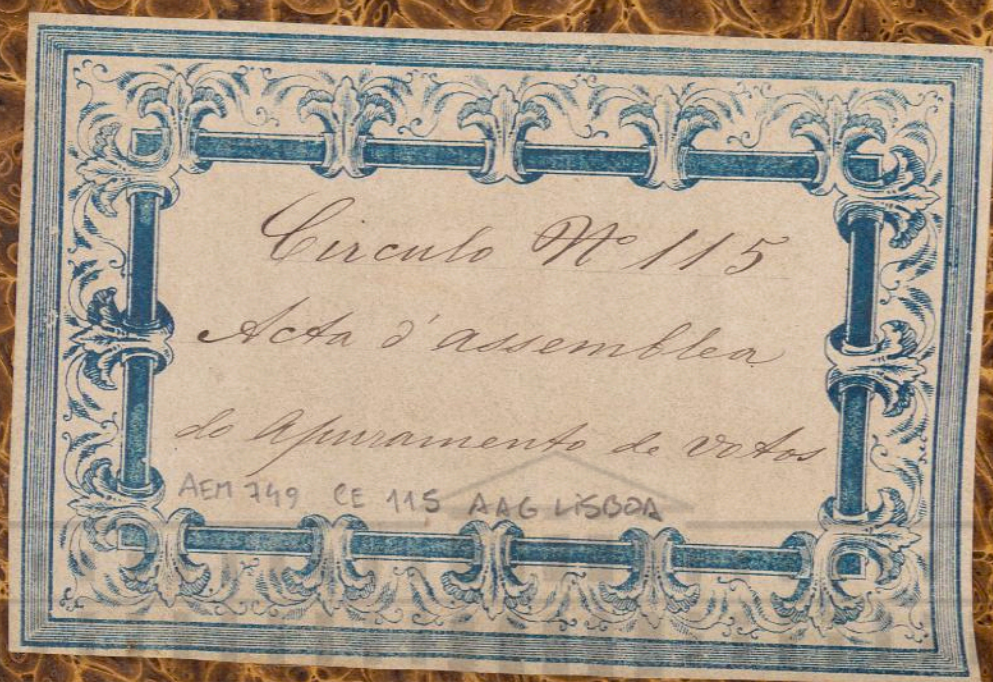 Circulo Nº 115
Acta d'assemblea
do Apuramento de votos
AEM 749 CE 115 AAG LISBOA